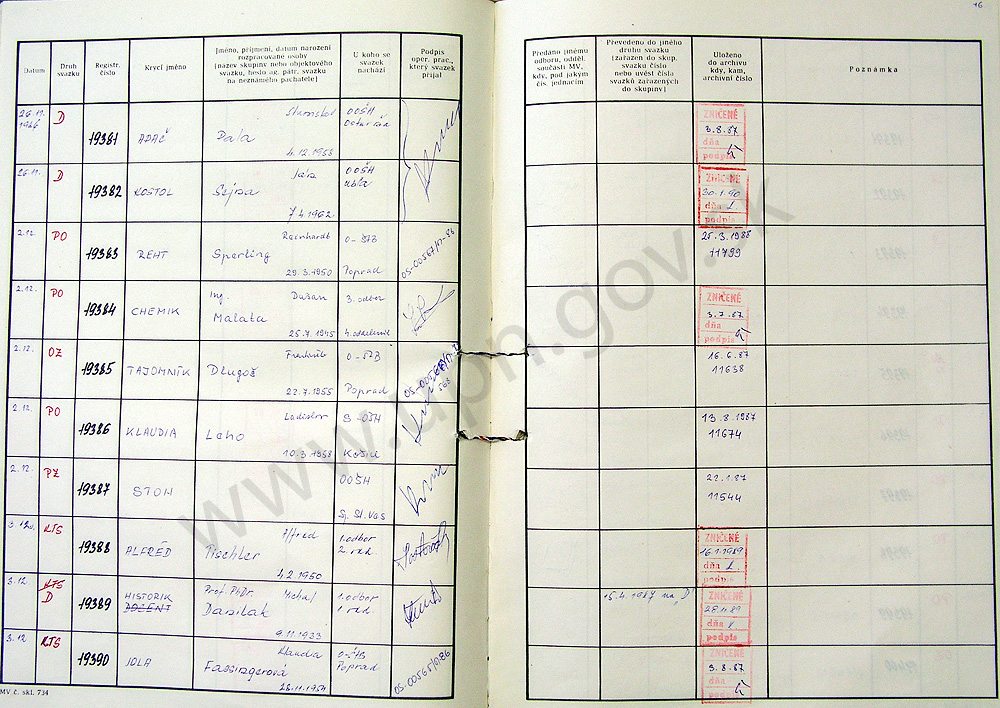 16
Datum
Druh svazku
Registr. číslo
Krycí jméno
Jméno, příjmení, datum narození
rozpracované osoby
[název skupiny nebo objektového
svazku, heslo ag. pátr. svazku
na neznámého pachatele]
U koho se
svazek
nachází
Podpis
oper. prac.,
který svazek
přijal
Předáno jinému
odboru, odděl.
součásti MV,
kdy, pod jakým
čís. jednacím
Převedeno do jiného
druhu svazku
[zařazen do skup.
svazku číslo
nebo uvést čísla
svazků zařazených
do skupiny]
Uloženo
do archivu
kdy, kam,
archivní číslo
Poznámka
26.11. 1986 D 19381 Dala 4.12.1953 OOŠH
ZNIČENÉ 3.8.87 dňa podpis
26.11. D 19382 KOSTOL Ján 7.4.1962 OOŠH
ZNIČENÉ 30.1.90 dňa podpis
2.12. PO 19383 REHT Reinhardt Sperling 29.3.1950 O-ŠTB Poprad
25.3.1988 11799
2.12. PO 19384 CHEMIK Ing. Dušan Malata 25.7.1945 3. odbor
ZNIČENÉ 3.7.87 dňa podpis
2.12. OZ 19385 TAJOMNÍK Dlugoš 22.7.1955 O-ŠTB Poprad
16.6.87 11638
2.12. PO 19386 KLAUDIA Ladislav Leho 10.3.1958 S-OŠH Košice
13.8.1987 11674
2.12. PZ 19387 STON OOŠH Sp. St. Ves
22.1.87 11544
3.12. KTS 19388 ALFRÉD Alfred Pischler 4.2.1950 1.odbor 2. rad.
ZNIČENÉ 16.1.1989 dňa podpis
3.12 KTS D 19389 HISTORIK DOCENT Prof. PhDr. Michal Danilák 9.11.1933 1.odbor 1. rad.
15.4.1987 na "D"
ZNIČENÉ dňa podpis
3.12 KTS 19390 JOLA Klaudia Fassingerová 28.11.1954 O-ŠTB Poprad
ZNIČENÉ 3.8.87 dňa podpis
MV č. skl. 734
www.upn.gov.sk